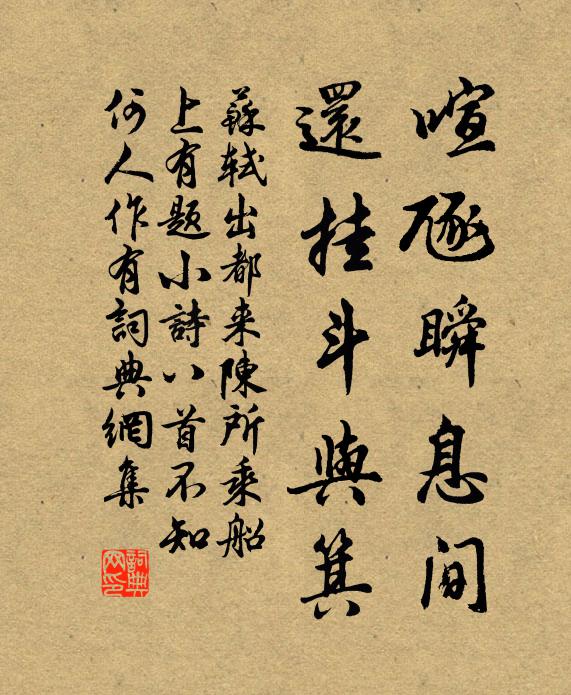 喧豗瞬息间
還挂斗與箕
蘇軾出都来陳所乘船
上有题小詩八首不知
何人作有詞典網集
詞典网印